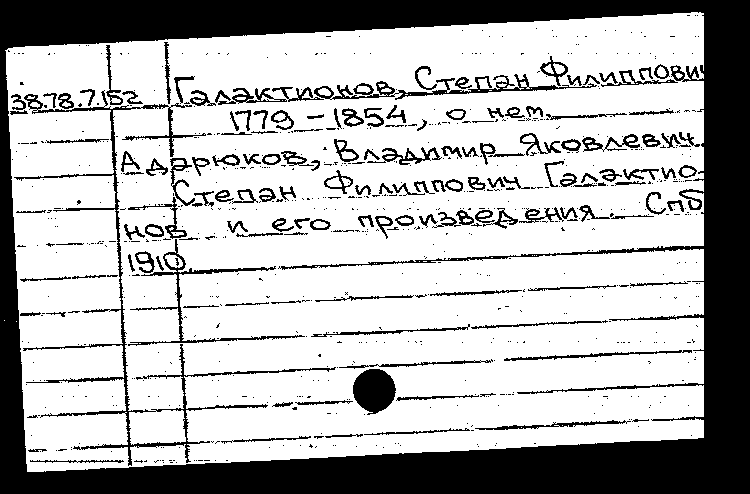 38.78.7.152 Галактионов, Степан Филиппович
1779 – 1854, о нем.
Адарюков, Владимир Яковлевич.
Степан Филиппович Галактио-
нов и его произведения. Спб
1910.